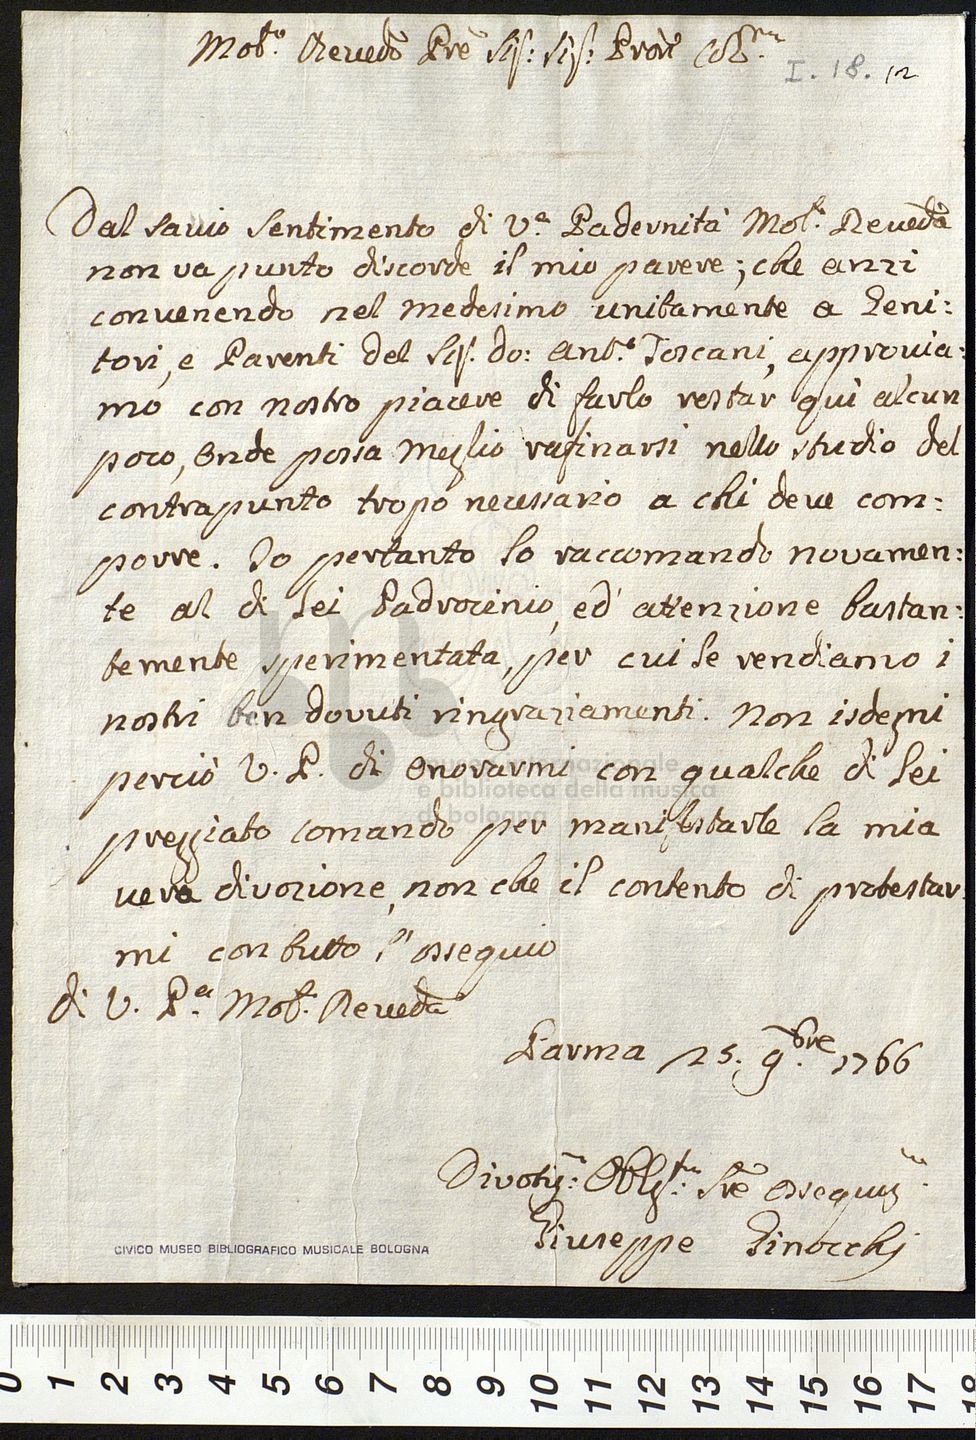 Molt.o Revedo Pre Sig: Sig: Prōe Colmo
I. 18. 12
Dal savio sentimento di V.a Padernità Molt. Reveda
non va punto discorde il mio parere; che anzi
convenendo nel medesimo unitamente a Geni:
tori, e Parenti del Sig. do: Ant.o Toscani, approvia:
mo con nostro piacere di farlo restar quì alcun
poco, onde possa meglio rafinarsi nello studio del
contrapunto tropo necessario a chi deve com:
porre. Io pertanto lo raccomando novamen:
te al di Lei Padrocinio, ed attenzione bastan:
temente sperimentata, per cui le rendiamo i
nostri ben dovuti ringraziamenti. Non isdegni
perciò V. P. di onorarmi con qualche di Lei
preggiato comando per manifestarle la mia
vera divozione, non che il contento di protestar:
mi con tutto l'ossequio
di V. P.a Molt. Reveda
Parma 25. 9.bre 1766
Divotis: Oblg.mo Sre ossequis.mo
Giuseppe Pinocchj
museo internazionale
e biblioteca della musica
di bologna
CIVICO MUSEO BIBLIOGRAFICO MUSICALE BOLOGNA
0 1 2 3 4 5 6 7 8 9 10 11 12 13 14 15 16 17 18